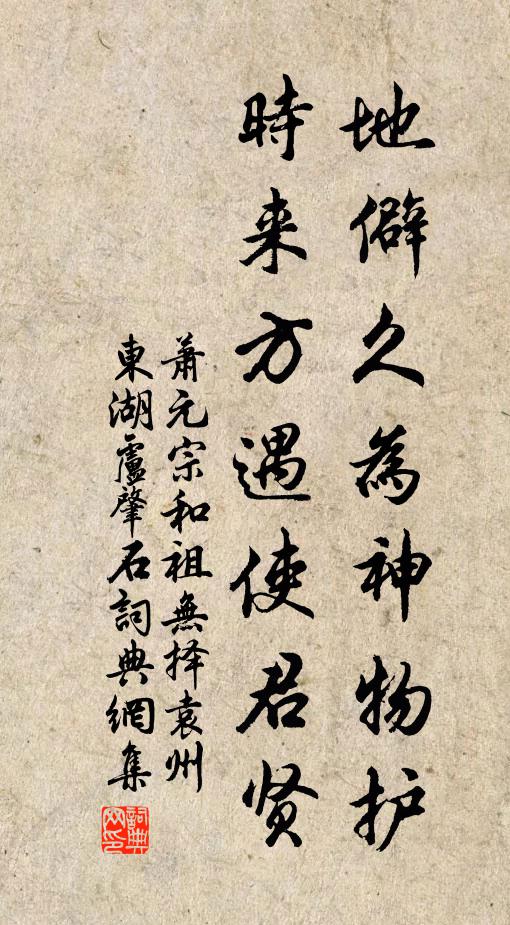 地僻久為神物护
時来方遇使君贤
萧元宗和祖無择袁州
東湖盧肇石詞典網集
詞典网印